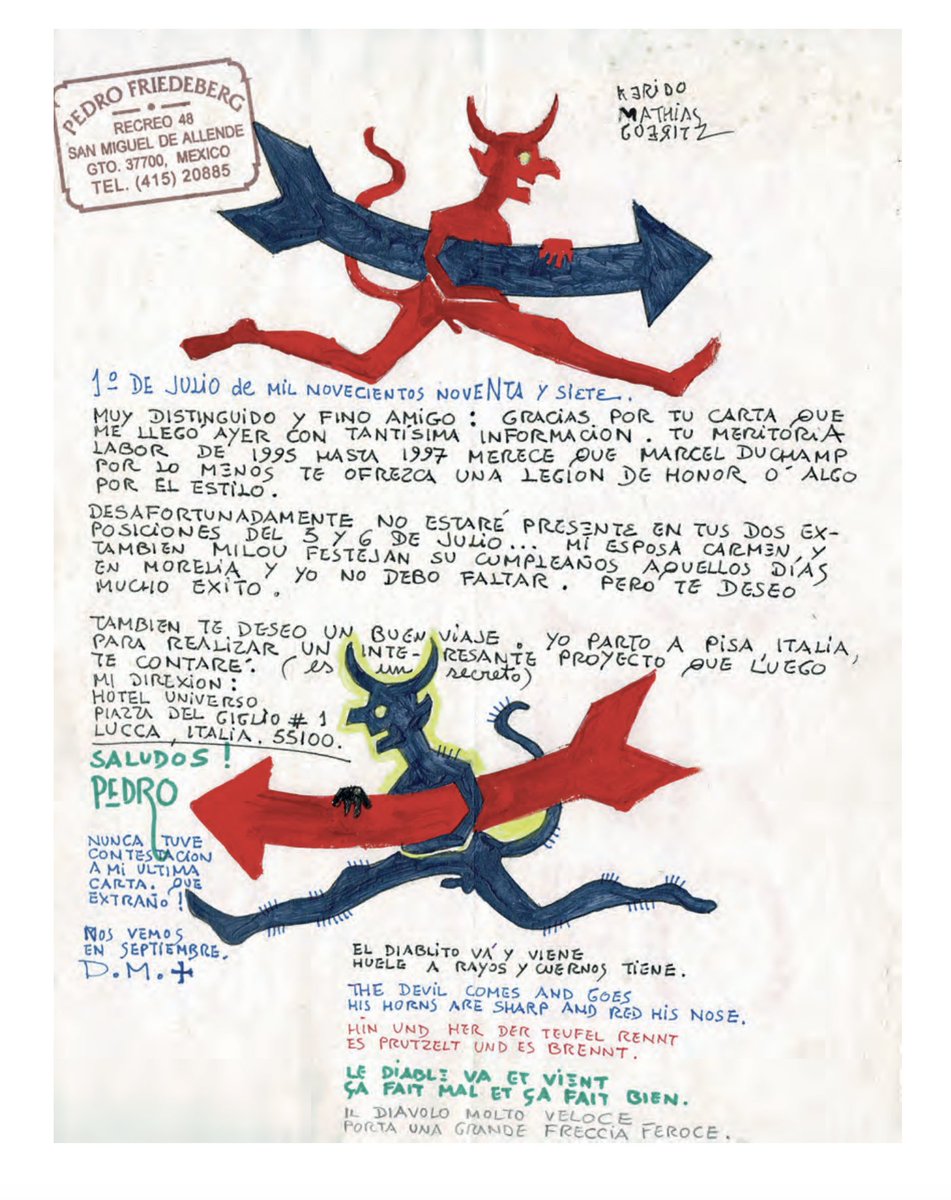 PEDRO FRIEDEBERG
RECREO 48
SAN MIGUEL DE ALLENDE
GTO. 37700, MEXICO
TEL. (415) 20885
KERIDO
MATHIAS
GOERITZ
1º DE JULIO de MIL NOVECIENTOS NOVENTA Y SIETE.
MUY DISTINGUIDO Y FINO AMIGO: GRACIAS POR TU CARTA QUE
ME LLEGO AYER CON TANTÍSIMA INFORMACION. TU MERITORIA
LABOR DE 1995 HASTA 1997 MERECE QUE MARCEL DUCHAMP
POR LO MENOS TE OFREZCA UNA LEGION DE HONOR O´ ALGO
POR EL ESTILO.
DESAFORTUNADAMENTE NO ESTARÉ PRESENTE EN TUS DOS EX-
POSICIONES DEL 5 Y 6 DE JULIO... MI ESPOSA CARMEN, Y
TAMBIEN MILOU FESTEJAN SU CUMPLEAÑOS AQUELLOS DÍAS
EN MORELIA Y YO NO DEBO FALTAR. PERO TE DESEO
MUCHO EXITO.
TAMBIEN TE DESEO UN BUEN VIAJE. YO PARTO A PISA, ITALIA,
PARA REALIZAR UN INTE-RESANTE PROYECTO QUE LUEGO
TE CONTARÉ. (es un secreto)
MI DIREXION:
HOTEL UNIVERSO
PIAZZA DEL GIGLIO # 1
LUCCA, ITALIA. 55100.
SALUDOS!
PEDRO
NUNCA TUVE
CONTESTACION
A MI ULTIMA
CARTA. QUE
EXTRAÑO!
NOS VEMOS
EN SEPTIEMBRE.
D.M.+
EL DIABLITO VÁ Y VIENE
HUELE A RAYOS Y CUERNOS TIENE.
THE DEVIL COMES AND GOES
HIS HORNS ARE SHARP AND RED HIS NOSE.
HIN UND HER DER TEUFEL RENNT
ES PRUTZELT UND ES BRENNT.
LE DIABLE VA ET VIENT
ÇA FAIT MAL ET ÇA FAIT BIEN.
IL DIAVOLO MOLTO VELOCE
PORTA UNA GRANDE FRECCIA FEROCE.